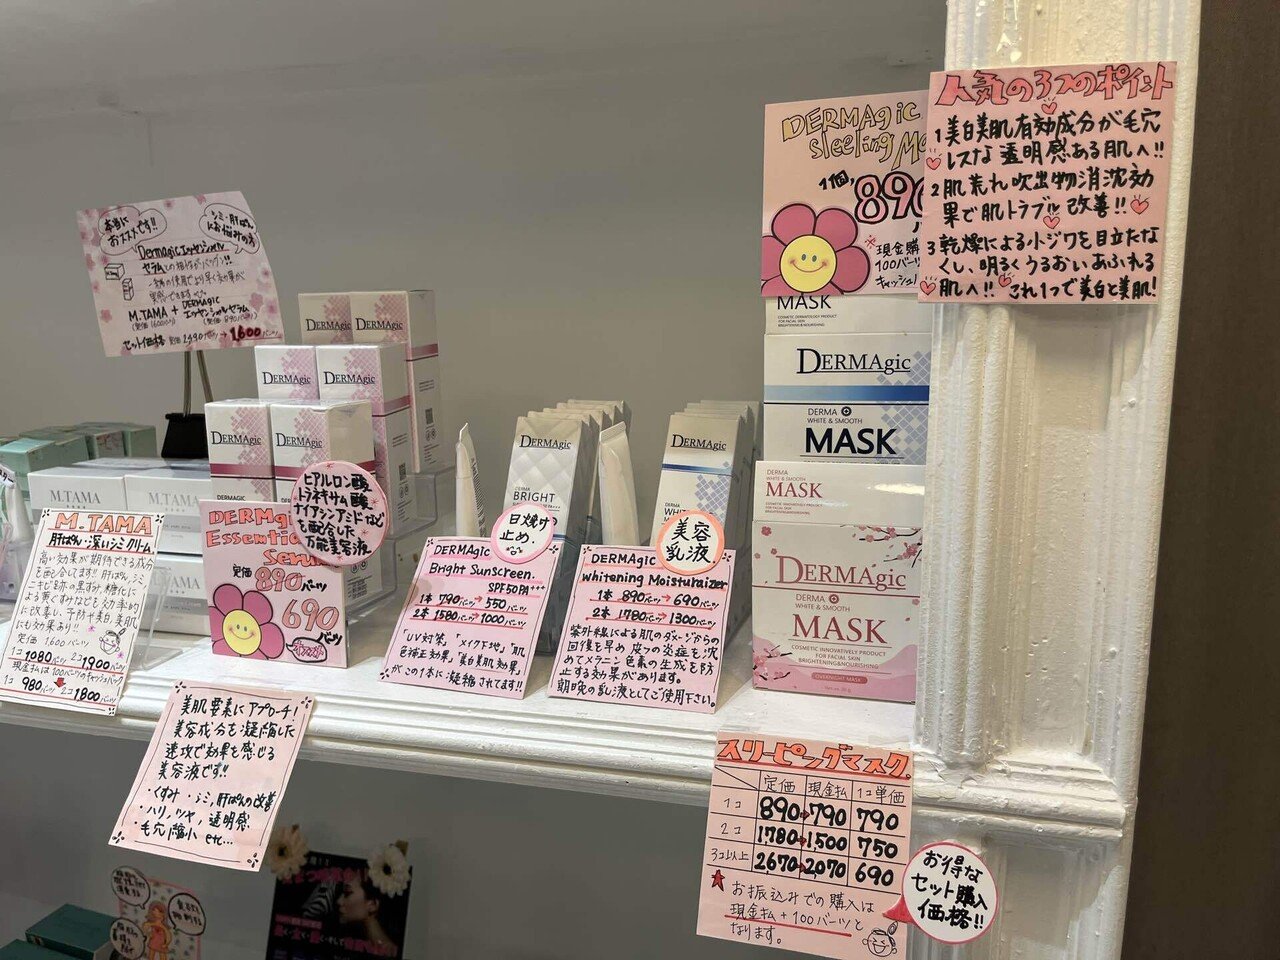 本当に
おススメです!!
シミ・肝ぱん
にお悩みの方
Dermagicエッセンシャル
セラムとの相性がバツグン!!
M.TAMA + DERMAgic
エッセンシャルセラム
(定価1600バーツ) (定価890バーツ)
セット価格 定価2490バーツ→1,600バーツ
DERMAgic
DERMAgic
DERMAgic
DERMAgic
DERMAgic
DERMAgic
DERMAGIC
M.TAMA
M.TAMA
M.TAMA
肝ぱん・深いシミクリーム
高い効果が期待できる成分
を配合してます!! 肝ぱん,シミ
ニキビ跡の黒ずみ,糖化に
よる黄ぐすみなども効率的
に改善し、予防や美白,美肌
にも効果あり!!
定価 1,600バーツ
1コ 1080バーツ 2コ 1900バーツ
現金払は100バーツのキャッシュバック
1コ 980バーツ 2コ 1800バーツ
DERMAgic
Essential
Serum
定価 890バーツ
690
バーツ
ヒアルロン酸
トラネキサム酸
ナイアシンアミドなど
を配合した
万能美容液
美肌要素にアプローチ!
美容成分を凝縮した
速攻で効果を感じる
美容液です!!
・くすみ・シミ,肝ぱんの改善
・ハリ,ツヤ,透明感
・毛穴縮小 etc...
DERMAgic
BRIGHT
日焼け
止め
DERMAgic
Bright Sunscreen.
SPF50PA+++
1本 790バーツ→550バーツ
2本 1580バーツ→1000バーツ
「UV対策」「メイク下地」「肌
色補正効果」「美白美肌効果」
がこの1本に凝縮されてます!!
DERMAgic
美容
乳液
DERMAgic
Whitening Moisturaizer
1本 890バーツ→690バーツ
2本 1780バーツ→1300バーツ
紫外線による肌のダメージからの
回復を早め皮フの炎症を沈
めてメラニン色素の生成を防
止する効果があります。
朝晩の乳液としてご使用下さい。
DERMAgic
sleeping Ma
1個,
890
※現金購
100バーツ
キャッシュ
MASK
COSMETIC DERMATOLOGY PRODUCT
FOR FACIAL SKIN
BRIGHTENING&NOURISHING
DERMAgic
DERMA
WHITE & SMOOTH
MASK
DERMA
WHITE & SMOOTH
MASK
COSMETIC INNOVATIVELY PRODUCT
FOR FACIAL SKIN
BRIGHTENING&NOURISHING
DERMAgic
DERMA
WHITE & SMOOTH
MASK
COSMETIC INNOVATIVELY PRODUCT
FOR FACIAL SKIN
BRIGHTENING&NOURISHING
OVERNIGHT MASK
人気の3つのポイント
1 美白美肌有効成分が毛穴
レスな透明感ある肌へ!!
2 肌荒れ吹出物消沈効
果で肌トラブル改善!!
3 乾燥による小ジワを目立たな
くし、明るくうるおいあふれる
肌へ!! これ1つで美白と美肌!
スリーピングマスク
定価 現金払 1コ単価
1コ 890→790 790
2コ 1,780→1,500 750
3コ以上 2,670→2,070 690
★お振込みでの購入は
現金払+100バーツと
なります。
お得な
セット購入
価格!!